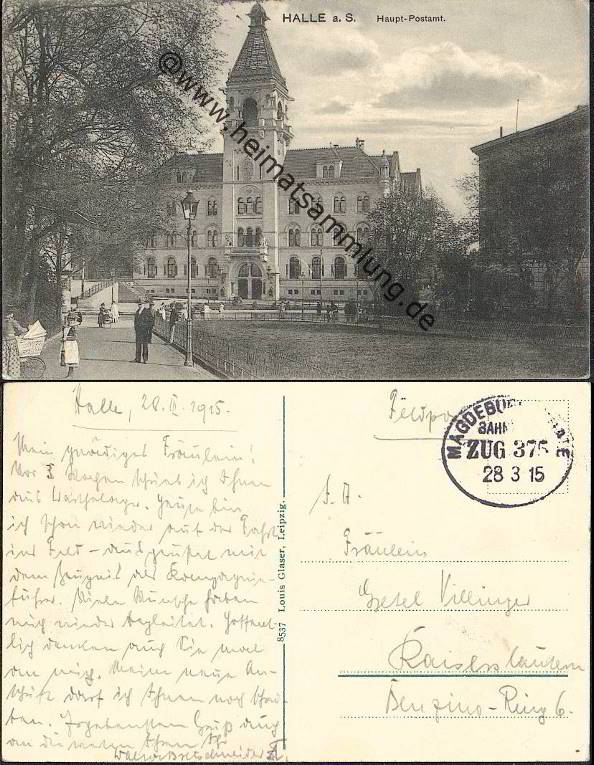 HALLE a. S. Haupt-Postamt.
@www.heimatsammlung.de
Halle, 28. III. 1915.
Mein gnädiges Fräulein!
Vor 3 Wochen schrieb ich Ihnen
aus Heute bin
ich schon wieder auf der Fahrt
ins Feld – ausgerüstet mit
dem Zeugnis des Kompagnie-
führer. Viele Wünsche haben
mich wieder begleitet. Hoffent-
lich denken auch Sie mal
an mich. Meine neue An-
schrift darf ich Ihnen noch schrei-
ben. Ergebensten Gruß auch
an die Ihr
Walter Bretschneider
8537 Louis Glaser, Leipzig.
Feldpo
MAGDEBU
BAHN
ZUG 375
28 3 15
Fräulein
Gretel Villinger
Kaiserslautern
Benzino-Ring 6.